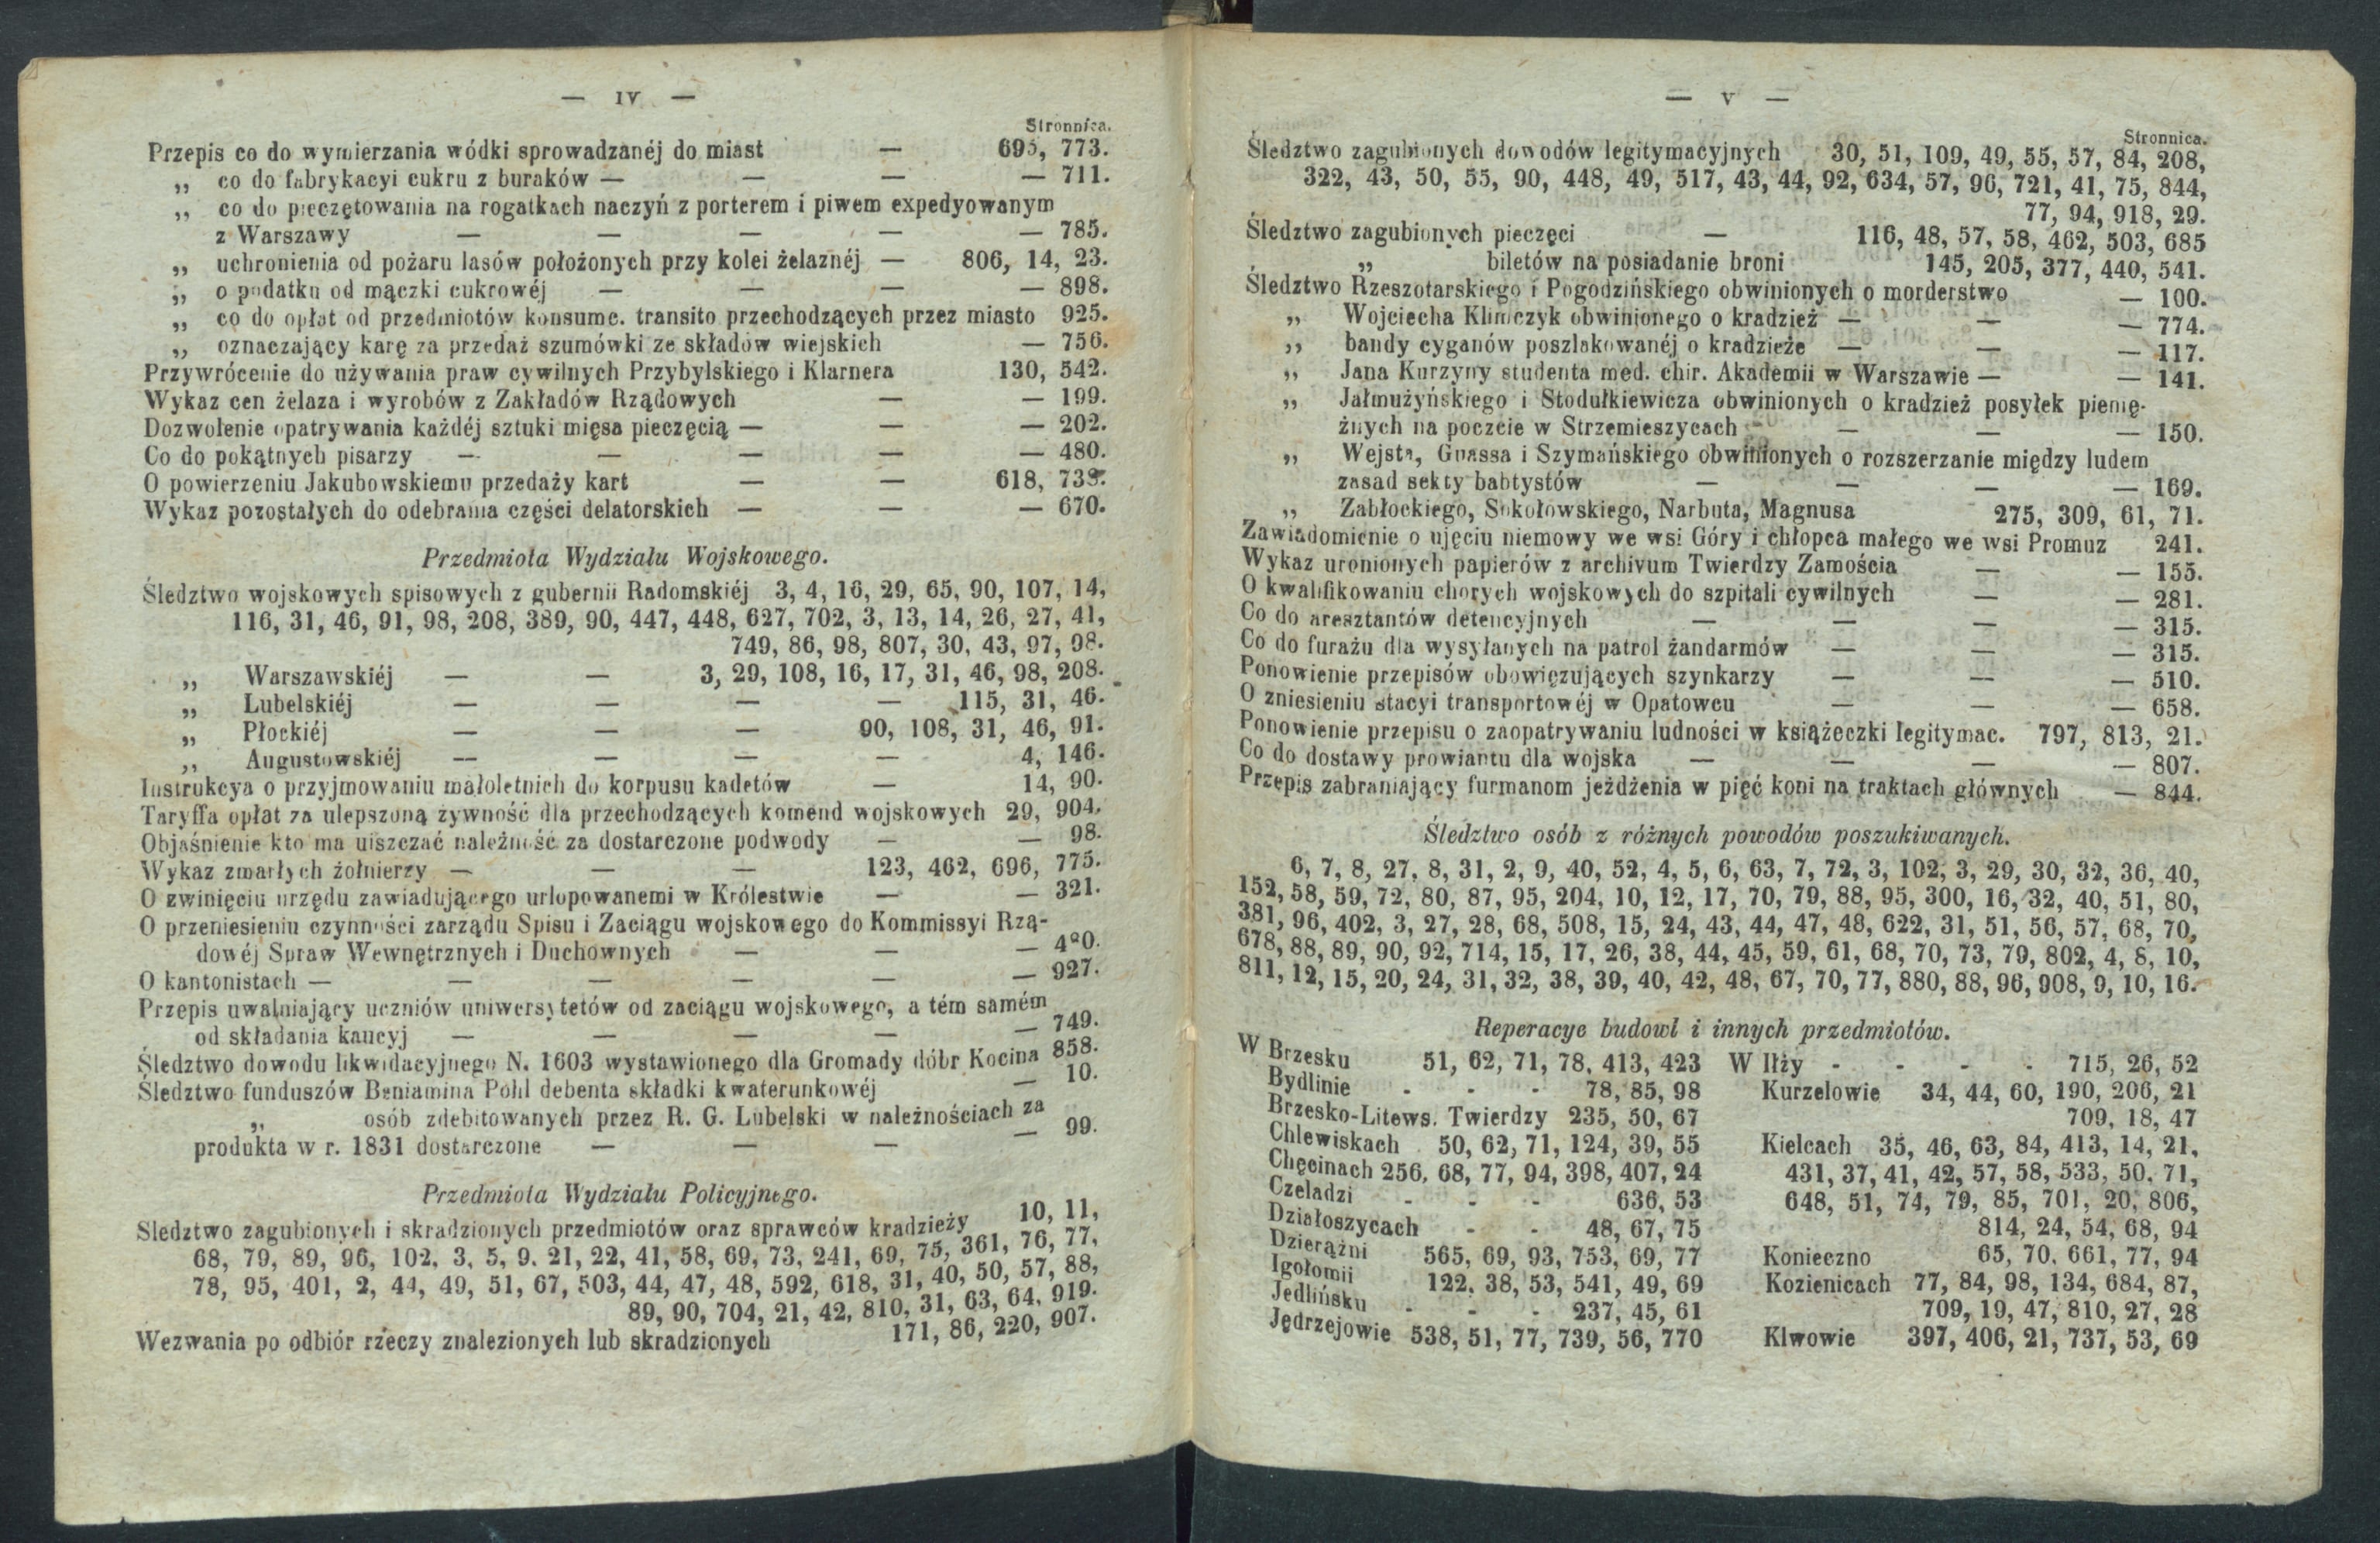 — IV —
Stronnica.
Przepis co do wymierzania wódki sprowadzanéj do miast — 695, 773.
„ co do fabrykacyi cukru z buraków — — — — 711.
„ co do pieczętowania na rogatkach naczyń z porterem i piwem expedyowanym
z Warszawy — — — — — 785.
„ uchronienia od pożaru lasów położonych przy kolei żelaznéj — 806, 14, 23.
„ o podatku od mączki cukrowéj — — — — 898.
„ co do opłat od przedmiotów konsumc. transito przechodzących przez miasto 925.
„ oznaczający karę za przedaż szumówki ze składów wiejskich — 756.
Przywrócenie do używania praw cywilnych Przybylskiego i Klarnera 130, 542.
Wykaz cen żelaza i wyrobów z Zakładów Rządowych — — 199.
Dozwolenie opatrywania każdéj sztuki mięsa pieczęcią — — — 202.
Co do pokątnych pisarzy — — — — — 480.
O powierzeniu Jakubowskiemu przedaży kart — — 618, 738.
Wykaz pozostałych do odebrania części delatorskich — — — 670.
Przedmiota Wydziału Wojskowego.
Śledztwo wojskowych spisowych z gubernii Radomskiéj 3, 4, 16, 29, 65, 90, 107, 14,
116, 31, 46, 91, 98, 208, 389, 90, 447, 448, 627, 702, 3, 13, 14, 26, 27, 41,
749, 86, 98, 807, 30, 43, 97, 98.
„ Warszawskiéj — — 3, 29, 108, 16, 17, 31, 46, 98, 208.
„ Lubelskiéj — — — — 115, 31, 46.
„ Płockiéj — — — 90, 108, 31, 46, 91.
„ Augustowskiéj — — — — 4, 146.
Instrukcya o przyjmowaniu małoletnich do korpusu kadetów — 14, 90.
Taryffa opłat za ulepszoną żywność dla przechodzących komend wojskowych 29, 904.
Objaśnienie kto ma uiszczać należność za dostarczone podwody — — 98.
Wykaz zmarłych żołnierzy — — — 123, 462, 696, 775.
O zwinięciu urzędu zawiadującego urlopowanemi w Królestwie — — 321.
O przeniesieniu czynności zarządu Spisu i Zaciągu wojskowego do Kommissyi Rzą-
dowéj Spraw Wewnętrznych i Duchownych — — — 480.
O kantonistach — — — — — — 927.
Przepis uwalniający uczniów uniwersytetów od zaciągu wojskowego, a tém samém
od składania kaucyj — — — — — 749.
Śledztwo dowodu likwidacyjnego N. 1603 wystawionego dla Gromady dóbr Kocina 858.
Śledztwo funduszów Beniamina Pohl debenta składki kwaterunkowéj — 10.
„ osób zdebitowanych przez R. G. Lubelski w należnościach za
produkta w r. 1831 dostarczone — — — — 99.
Przedmiota Wydziału Policyjnego.
Sledztwo zagubionych i skradzionych przedmiotów oraz sprawców kradzieży 10, 11,
68, 79, 89, 96, 102, 3, 5, 9, 21, 22, 41, 58, 69, 73, 241, 69, 75, 361, 76, 77,
78, 95, 401, 2, 44, 49, 51, 67, 503, 44, 47, 48, 592, 618, 31, 40, 50, 57, 88,
89, 90, 704, 21, 42, 810, 31, 63, 64, 919.
Wezwania po odbiór rzeczy znalezionych lub skradzionych 171, 86, 220, 907.
— V —
Stronnica.
Śledztwo zagubionych dowodów legitymacyjnych 30, 51, 109, 49, 55, 57, 84, 208,
322, 43, 50, 55, 90, 448, 49, 517, 43, 44, 92, 634, 57, 96, 721, 41, 75, 844,
77, 94, 918, 29.
Śledztwo zagubionych pieczęci — 116, 48, 57, 58, 462, 503, 685
„ biletów na posiadanie broni 145, 205, 377, 440, 541.
Śledztwo Rzeszotarskiego i Pogodzińskiego obwinionych o morderstwo — 100.
„ Wojciecha Klimczyk obwinionego o kradzież — — — 774.
„ bandy cyganów poszlakowanéj o kradzieże — — — 117.
„ Jana Kurzyny studenta med. chir. Akademii w Warszawie — — 141.
„ Jałmużyńskiego i Stodułkiewicza obwinionych o kradzież posyłek pienię-
żnych na poczcie w Strzemieszycach — — — — 150.
„ Wejsta, Gnassa i Szymańskiego obwinionych o rozszerzanie między ludem
zasad sekty babtystów — — — — 169.
„ Zabłockiego, Sokołowskiego, Narbuta, Magnusa 275, 309, 61, 71.
Zawiadomienie o ujęciu niemowy we wsi Góry i chłopca małego we wsi Promuz 241.
Wykaz uronionych papierów z archivum Twierdzy Zamościa — — 155.
O kwalifikowaniu chorych wojskowych do szpitali cywilnych — — 281.
Co do aresztantów detencyjnych — — — — 315.
Co do furażu dla wysyłanych na patrol żandarmów — — — 315.
Ponowienie przepisów obowięzujących szynkarzy — — — 510.
O zniesieniu stacyi transportowéj w Opatowcu — — — 658.
Ponowienie przepisu o zaopatrywaniu ludności w książeczki legitymac. 797, 813, 21.
Co do dostawy prowiantu dla wojska — — — — 807.
Przepis zabraniający furmanom jeżdżenia w pięć koni na traktach głównych — 844.
Śledztwo osób z różnych powodów poszukiwanych.
6, 7, 8, 27, 8, 31, 2, 9, 40, 52, 4, 5, 6, 63, 7, 72, 3, 102, 3, 29, 30, 32, 36, 40,
152, 58, 59, 72, 80, 87, 95, 204, 10, 12, 17, 70, 79, 88, 95, 300, 16, 32, 40, 51, 80,
381, 96, 402, 3, 27, 28, 68, 508, 15, 24, 43, 44, 47, 48, 622, 31, 51, 56, 57, 68, 70,
678, 88, 89, 90, 92, 714, 15, 17, 26, 38, 44, 45, 59, 61, 68, 70, 73, 79, 802, 4, 8, 10,
811, 12, 15, 20, 24, 31, 32, 38, 39, 40, 42, 48, 67, 70, 77, 880, 88, 96, 908, 9, 10, 16.
Reperacye budowl i innych przedmiotów.
W Brzesku 51, 62, 71, 78, 413, 423
Bydlinie - - - 78, 85, 98
Brzesko-Litews. Twierdzy 235, 50, 67
Chlewiskach 50, 62, 71, 124, 39, 55
Chęcinach 256, 68, 77, 94, 398, 407, 24
Czeladzi - - - 636, 53
Działoszycach - - 48, 67, 75
Dzierążni 565, 69, 93, 753, 69, 77
Igołomii 122, 38, 53, 541, 49, 69
Jedlińsku - - - 237, 45, 61
Jędrzejowie 538, 51, 77, 739, 56, 770
W Iłży - - - - 715, 26, 52
Kurzelowie 34, 44, 60, 190, 206, 21
709, 18, 47
Kielcach 35, 46, 63, 84, 413, 14, 21,
431, 37, 41, 42, 57, 58, 533, 50, 71,
648, 51, 74, 79, 85, 701, 20, 806,
814, 24, 54, 68, 94
Konieczno 65, 70, 661, 77, 94
Kozienicach 77, 84, 98, 134, 684, 87,
709, 19, 47, 810, 27, 28
Klwowie 397, 406, 21, 737, 53, 69